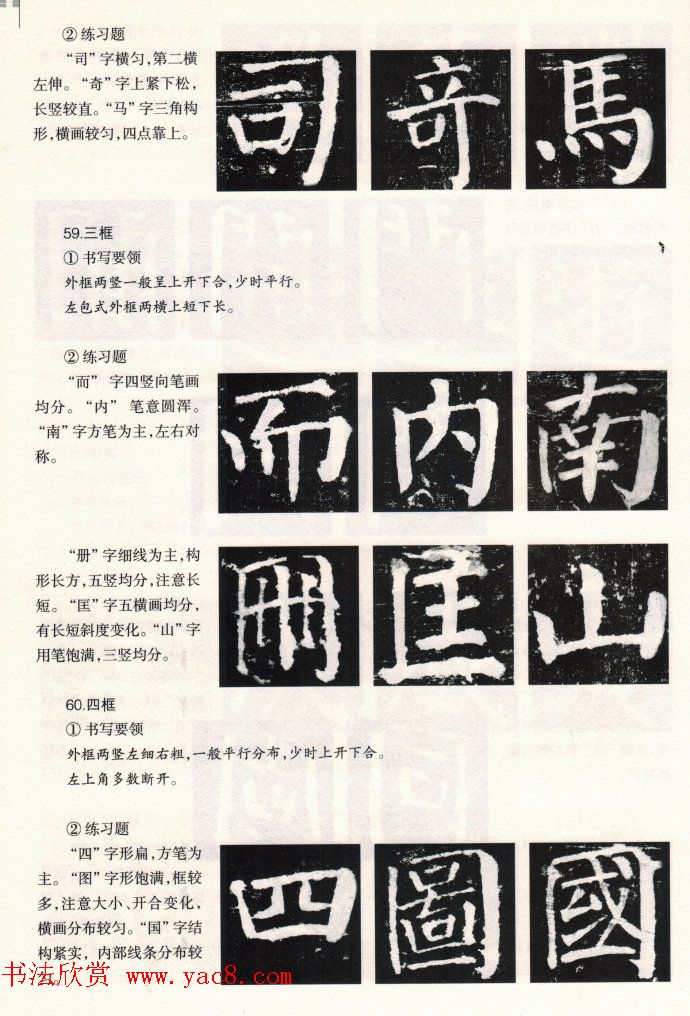 ②练习题
“司”字横匀,第二横
左伸。“奇”字上紧下松,
长竖较直。“马”字三角构
形,横画较匀,四点靠上。
司 奇 馬
59.三框
①书写要领
外框两竖一般呈上开下合,少时平行。
左包式外框两横上短下长。
②练习题
“而”字四竖向笔画
均分。“内” 笔意圆浑。
“南”字方笔为主,左右对
称。
而 内 南
“册”字细线为主,构
形长方,五竖均分,注意长
短。“匡”字五横画均分,
有长短斜度变化。“山”字
用笔饱满,三竖均分。
冊 匡 山
60.四框
①书写要领
外框两竖左细右粗,一般平行分布,少时上开下合。
左上角多数断开。
②练习题
“四”字形扁,方笔为
主。“图”字形饱满,框较
多,注意大小、开合变化,
横画分布较匀。“国”字结
构紧实,内部线条分布较
四 圖 國
书法欣赏 www.yac8.com